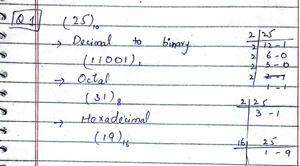 Q1 (25)₁₀
→ Decimal to binary
(11001)₂
→ Octal
(31)₈
→ Hexadecimal
(19)₁₆
2 | 25
2 | 12-1
2 | 6-0
2 | 3-0
2
1-1
2 | 25
3-1
16 | 25
1-9